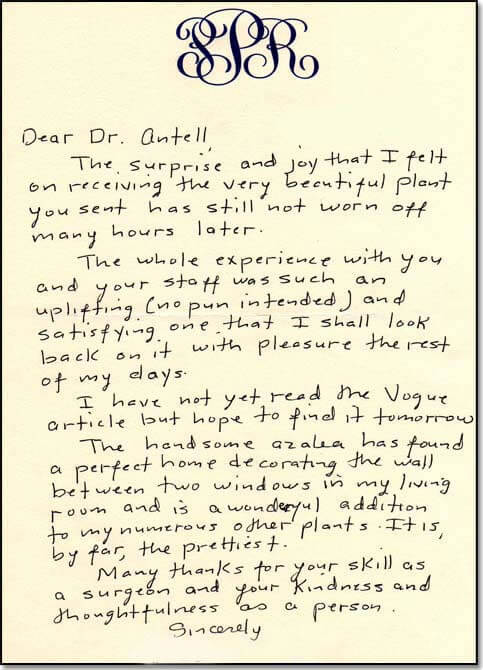 SPR
Dear Dr. Antell,
The surprise and joy that I felt
on receiving the very beautiful plant
you sent has still not worn off
many hours later.
The whole experience with you
and your staff was such an
uplifting (no pun intended) and
satisfying one that I shall look
back on it with pleasure the rest
of my days.
I have not yet read the Vogue
article but hope to find it tomorrow
The handsome azalea has found
a perfect home decorating the wall
between two windows in my living
room and is a wonderful addition
to my numerous other plants. It is,
by far, the prettiest.
Many thanks for your skill as
a surgeon and your kindness and
thoughtfulness as a person.
Sincerely